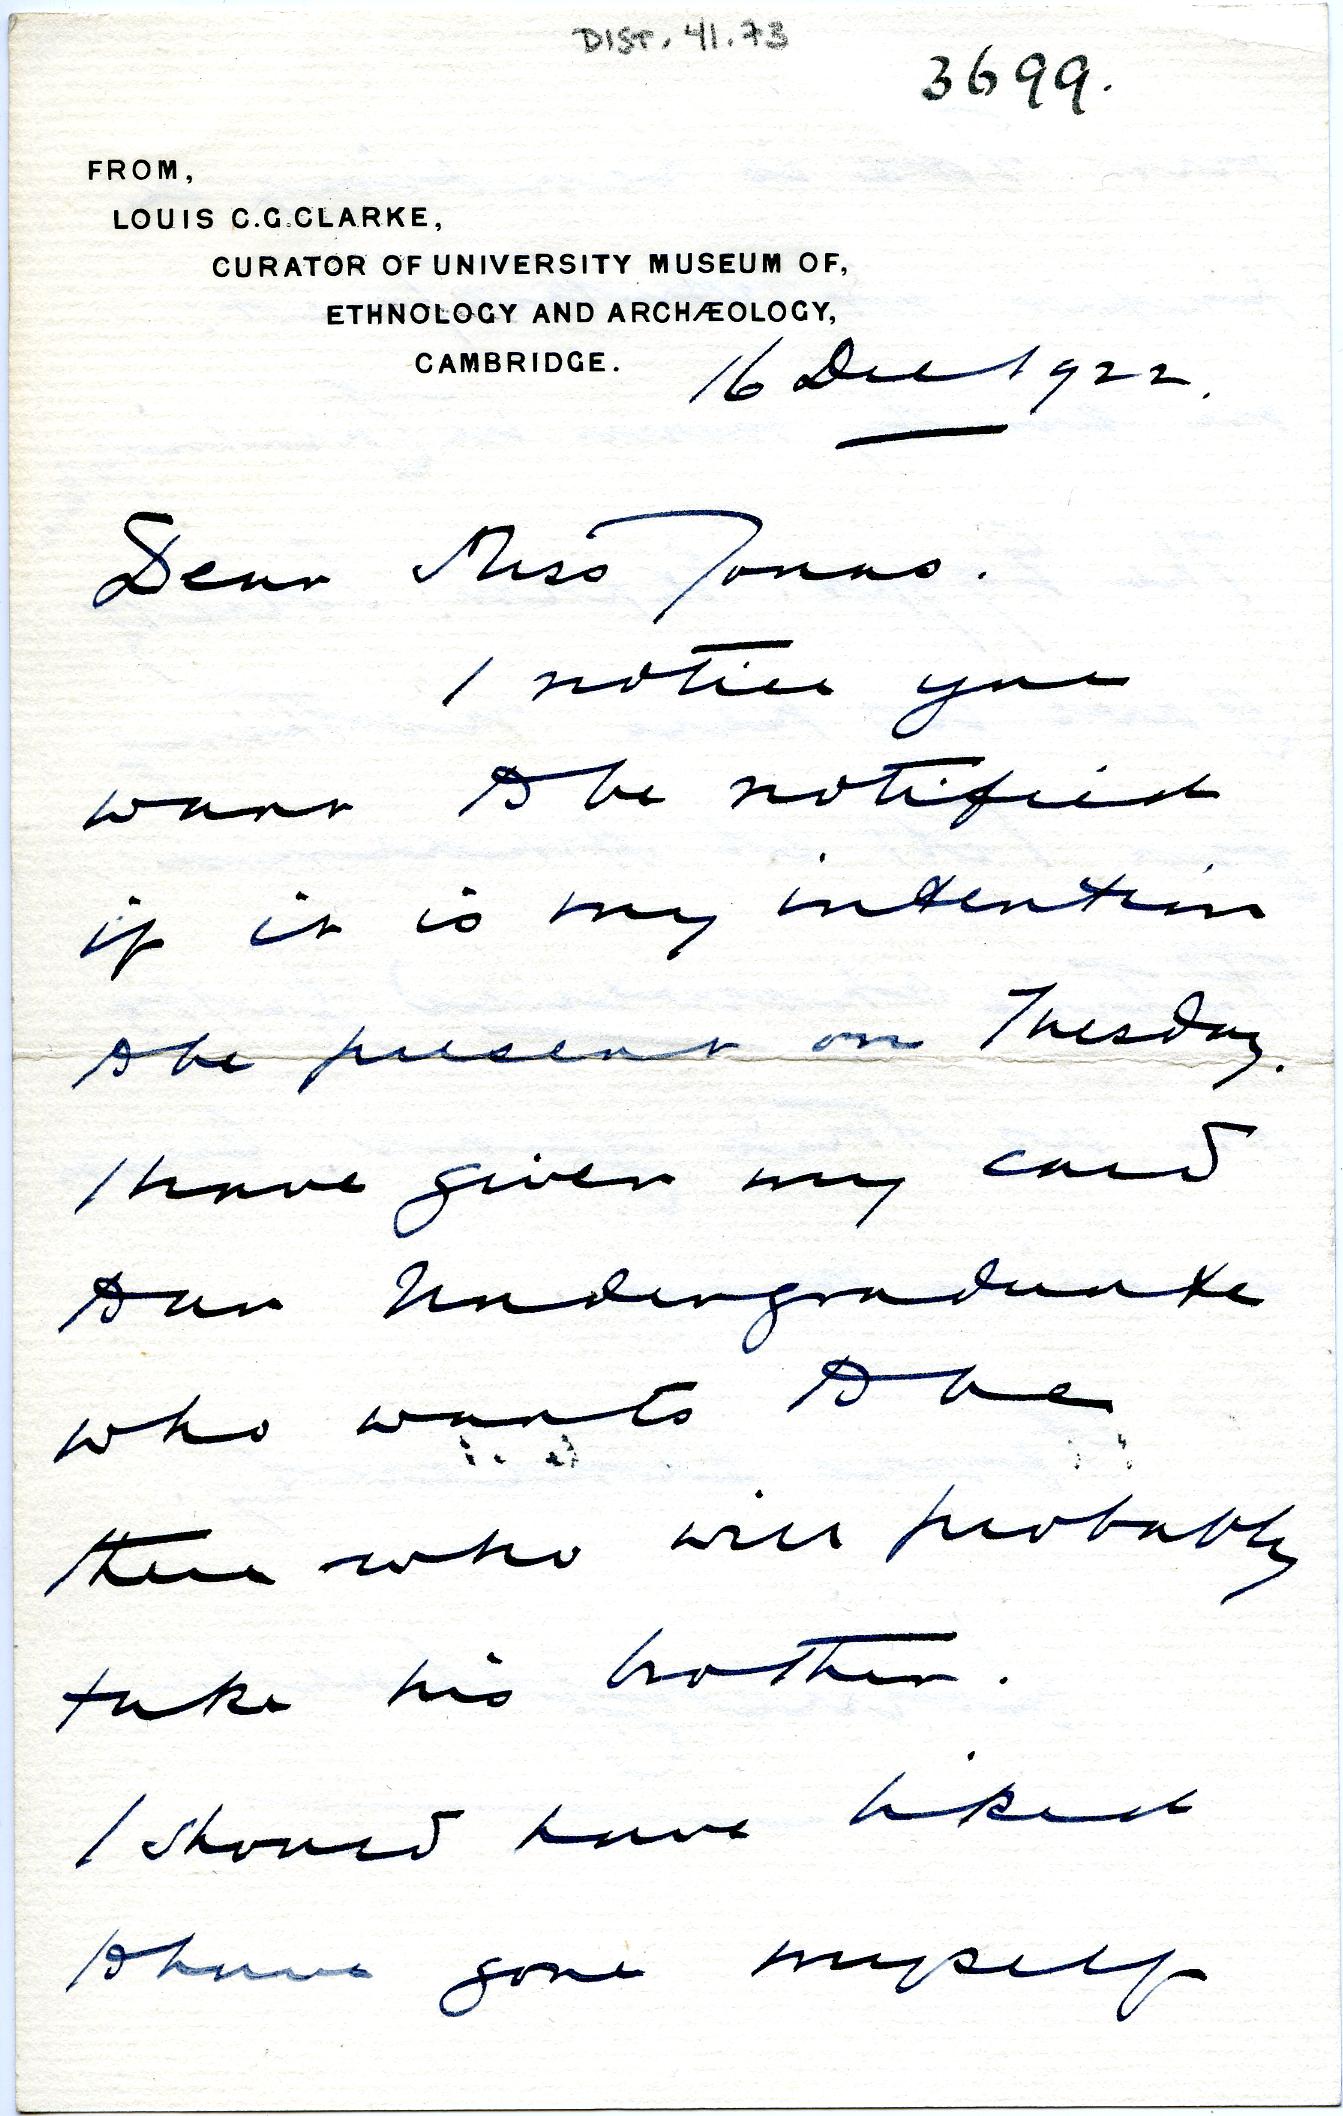 DIST. 41.73
3699.
FROM,
LOUIS C.G.CLARKE,
CURATOR OF UNIVERSITY MUSEUM OF,
ETHNOLOGY AND ARCHÆOLOGY,
CAMBRIDGE.
16 Dec 1922.
Dear Miss Jonas.
I notice you
want to be notified
if it is my intention
to be present on Tuesday.
I have given my card
to an Undergraduate
who wants to be
there who will probably
take his brother.
I should have liked
to have gone myself